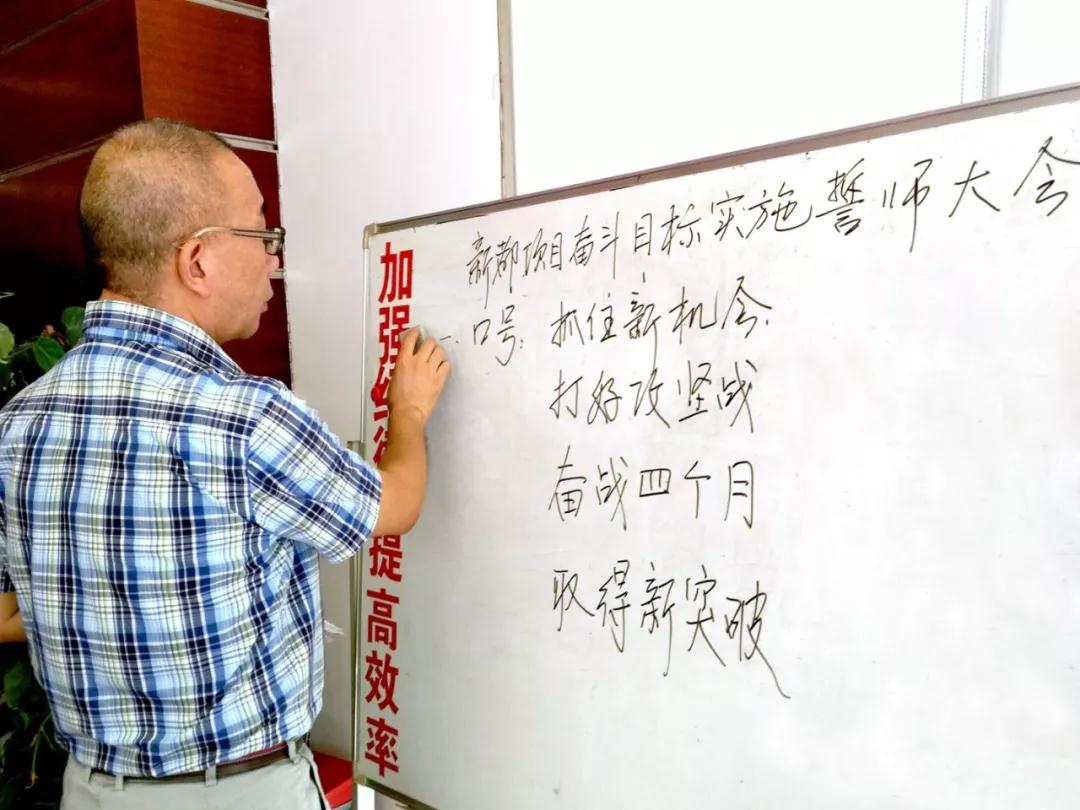 新都项目奋斗目标实施誓师大会
一、口号：抓住新机会
打好攻坚战
奋战四个月
取得新突破
加强
提高效率